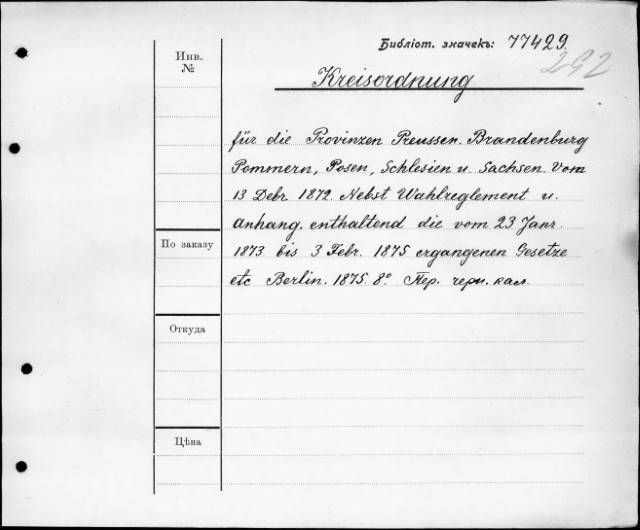 Библіот. значекъ: 77429.
292
Инв.
№
Kreisordnung
für die Provinzen Preussen. Brandenburg
Pommern, Posen, Schlesien u. Sachsen. Vom
13 Debr. 1872. Nebst Wahlreglement u.
Anhang. enthaltend die vom 23 Janr.
По заказу
1873 bis 3 Febr. 1875 ergangenen Gesetze
etc Berlin. 1875. 8° Пер. черн. кал.
Откуда
Цѣна